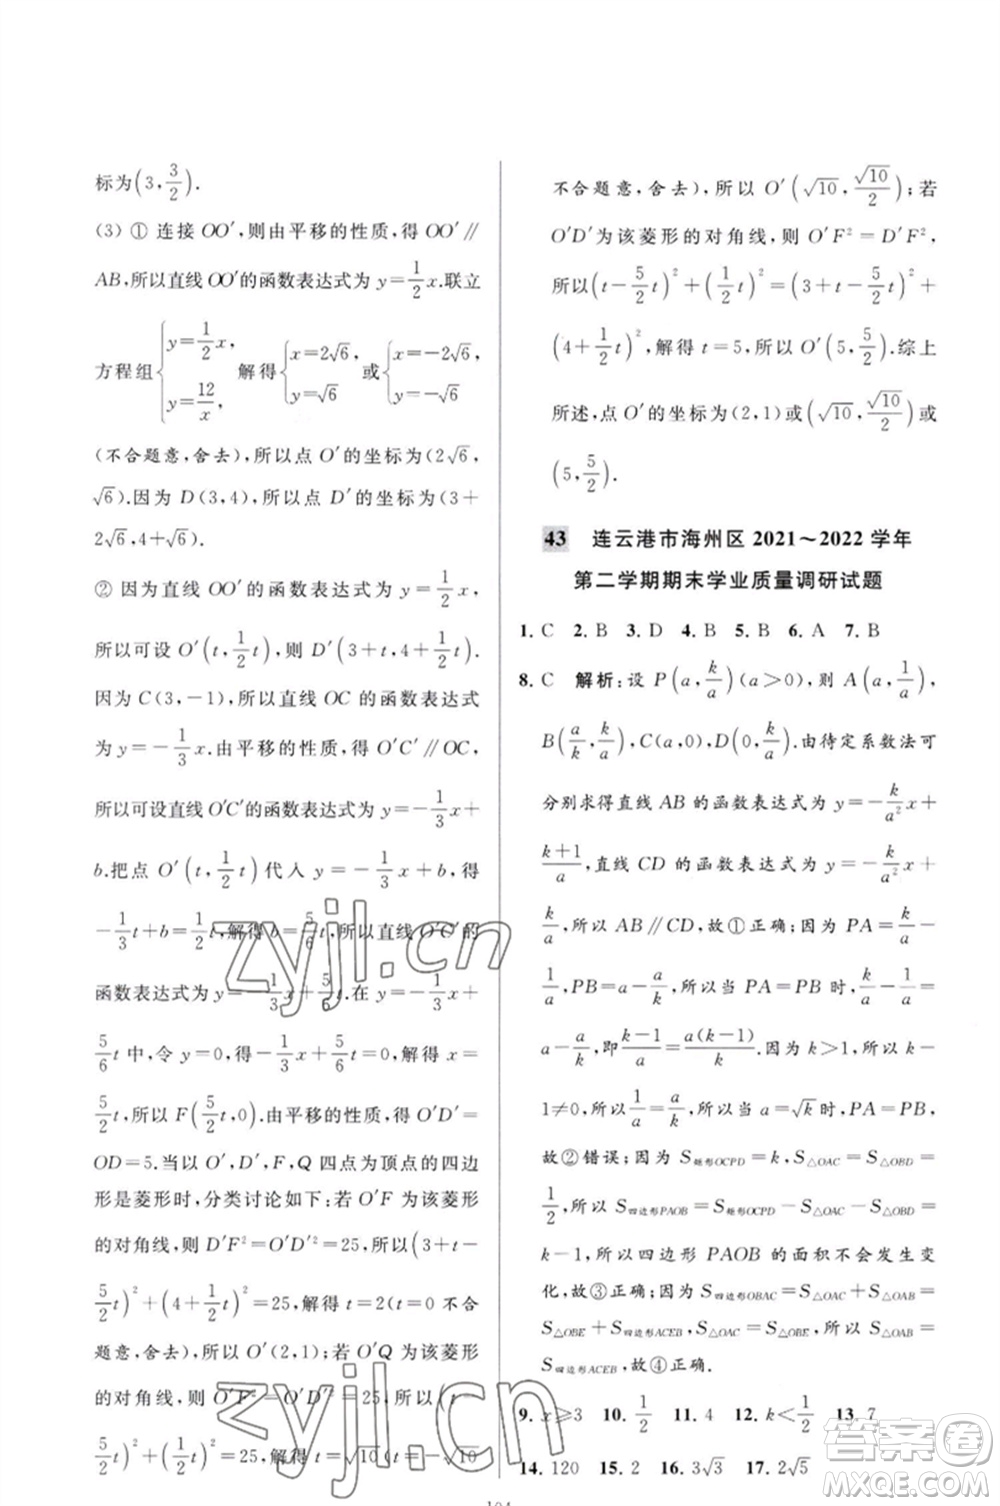 标为(3, 3/2).
(3) ① 连接 OO′,则由平移的性质,得 OO′∥
AB,所以直线 OO′的函数表达式为 y=1/2x.联立
方程组{y=1/2x, y=12/x, 解得{x=2√6, y=√6 或{x=-2√6, y=-√6
(不合题意,舍去),所以点 O′的坐标为(2√6,
√6).因为 D(3,4),所以点 D′的坐标为(3+
2√6,4+√6).
② 因为直线 OO′的函数表达式为 y=1/2x,
所以可设 O′(t, 1/2t),则 D′(3+t, 4+1/2t).
因为 C(3,-1),所以直线 OC 的函数表达式
为 y=-1/3x.由平移的性质,得 O′C′∥OC,
所以可设直线 O′C′的函数表达式为 y=-1/3x+
b.把点 O′(t, 1/2t)代入 y=-1/3x+b,得
-1/3t+b=1/2t,解得 b=5/6t,所以直线 O′C′的
函数表达式为 y=-1/3x+5/6t.在 y=-1/3x+
5/6t 中,令 y=0,得-1/3x+5/6t=0,解得 x=
5/2t,所以 F(5/2t,0).由平移的性质,得 O′D′=
OD=5.当以 O′,D′,F,Q 四点为顶点的四边
形是菱形时,分类讨论如下:若 O′F 为该菱形
的对角线,则 D′F²=O′D′²=25,所以(3+t-
5/2t)²+(4+1/2t)²=25,解得 t=2(t=0 不合
题意,舍去),所以 O′(2,1);若 O′Q 为该菱形
的对角线,则 O′F²=O′D′²=25,所以(t-
5/2t)²+(1/2t)²=25,解得 t=√10(t=-√10
104
不合题意,舍去),所以 O′(√10, √10/2);若
O′D′为该菱形的对角线,则 O′F²=D′F²,
所以(t-5/2t)²+(1/2t)²=(3+t-5/2t)²+
(4+1/2t)²,解得 t=5,所以 O′(5, 5/2).综上
所述,点 O′的坐标为(2,1)或(√10, √10/2)或
(5, 5/2).
43 连云港市海州区 2021~2022 学年
第二学期期末学业质量调研试题
1. C 2. B 3. D 4. B 5. B 6. A 7. B
8. C 解析:设 P(a, k/a)(a>0),则 A(a, 1/a),
B(a/k, k/a),C(a,0),D(0, k/a).由待定系数法可
分别求得直线 AB 的函数表达式为 y=-k/a²x+
k+1/a,直线 CD 的函数表达式为 y=-k/a²x+
k/a,所以 AB∥CD,故①正确;因为 PA=k/a-
1/a,PB=a-a/k,所以当 PA=PB 时,k/a-1/a=
a-a/k,即k-1/a=a(k-1)/k.因为 k>1,所以 k-
1≠0,所以1/a=a/k.所以当 a=√k时,PA=PB,
故②错误;因为 S矩形OCPD=k,S△OAC=S△OBD=
1/2,所以 S四边形PAOB=S矩形OCPD-S△OAC-S△OBD=
k-1,所以四边形 PAOB 的面积不会发生变
化,故③正确;因为 S四边形OBAC=S△OAB+S△OAC=
S△OBE+S四边形ACEB,S△OAC=S△OBE,所以 S△OAB=
S四边形ACEB,故④正确.
9. x≥3 10. 1/2 11. 4 12. k<1/2 13. 7
14. 120 15. 2 16. 3√3 17. 2√5
zyjl.cn
zyjl.cn
答案圈
MXQE.COM